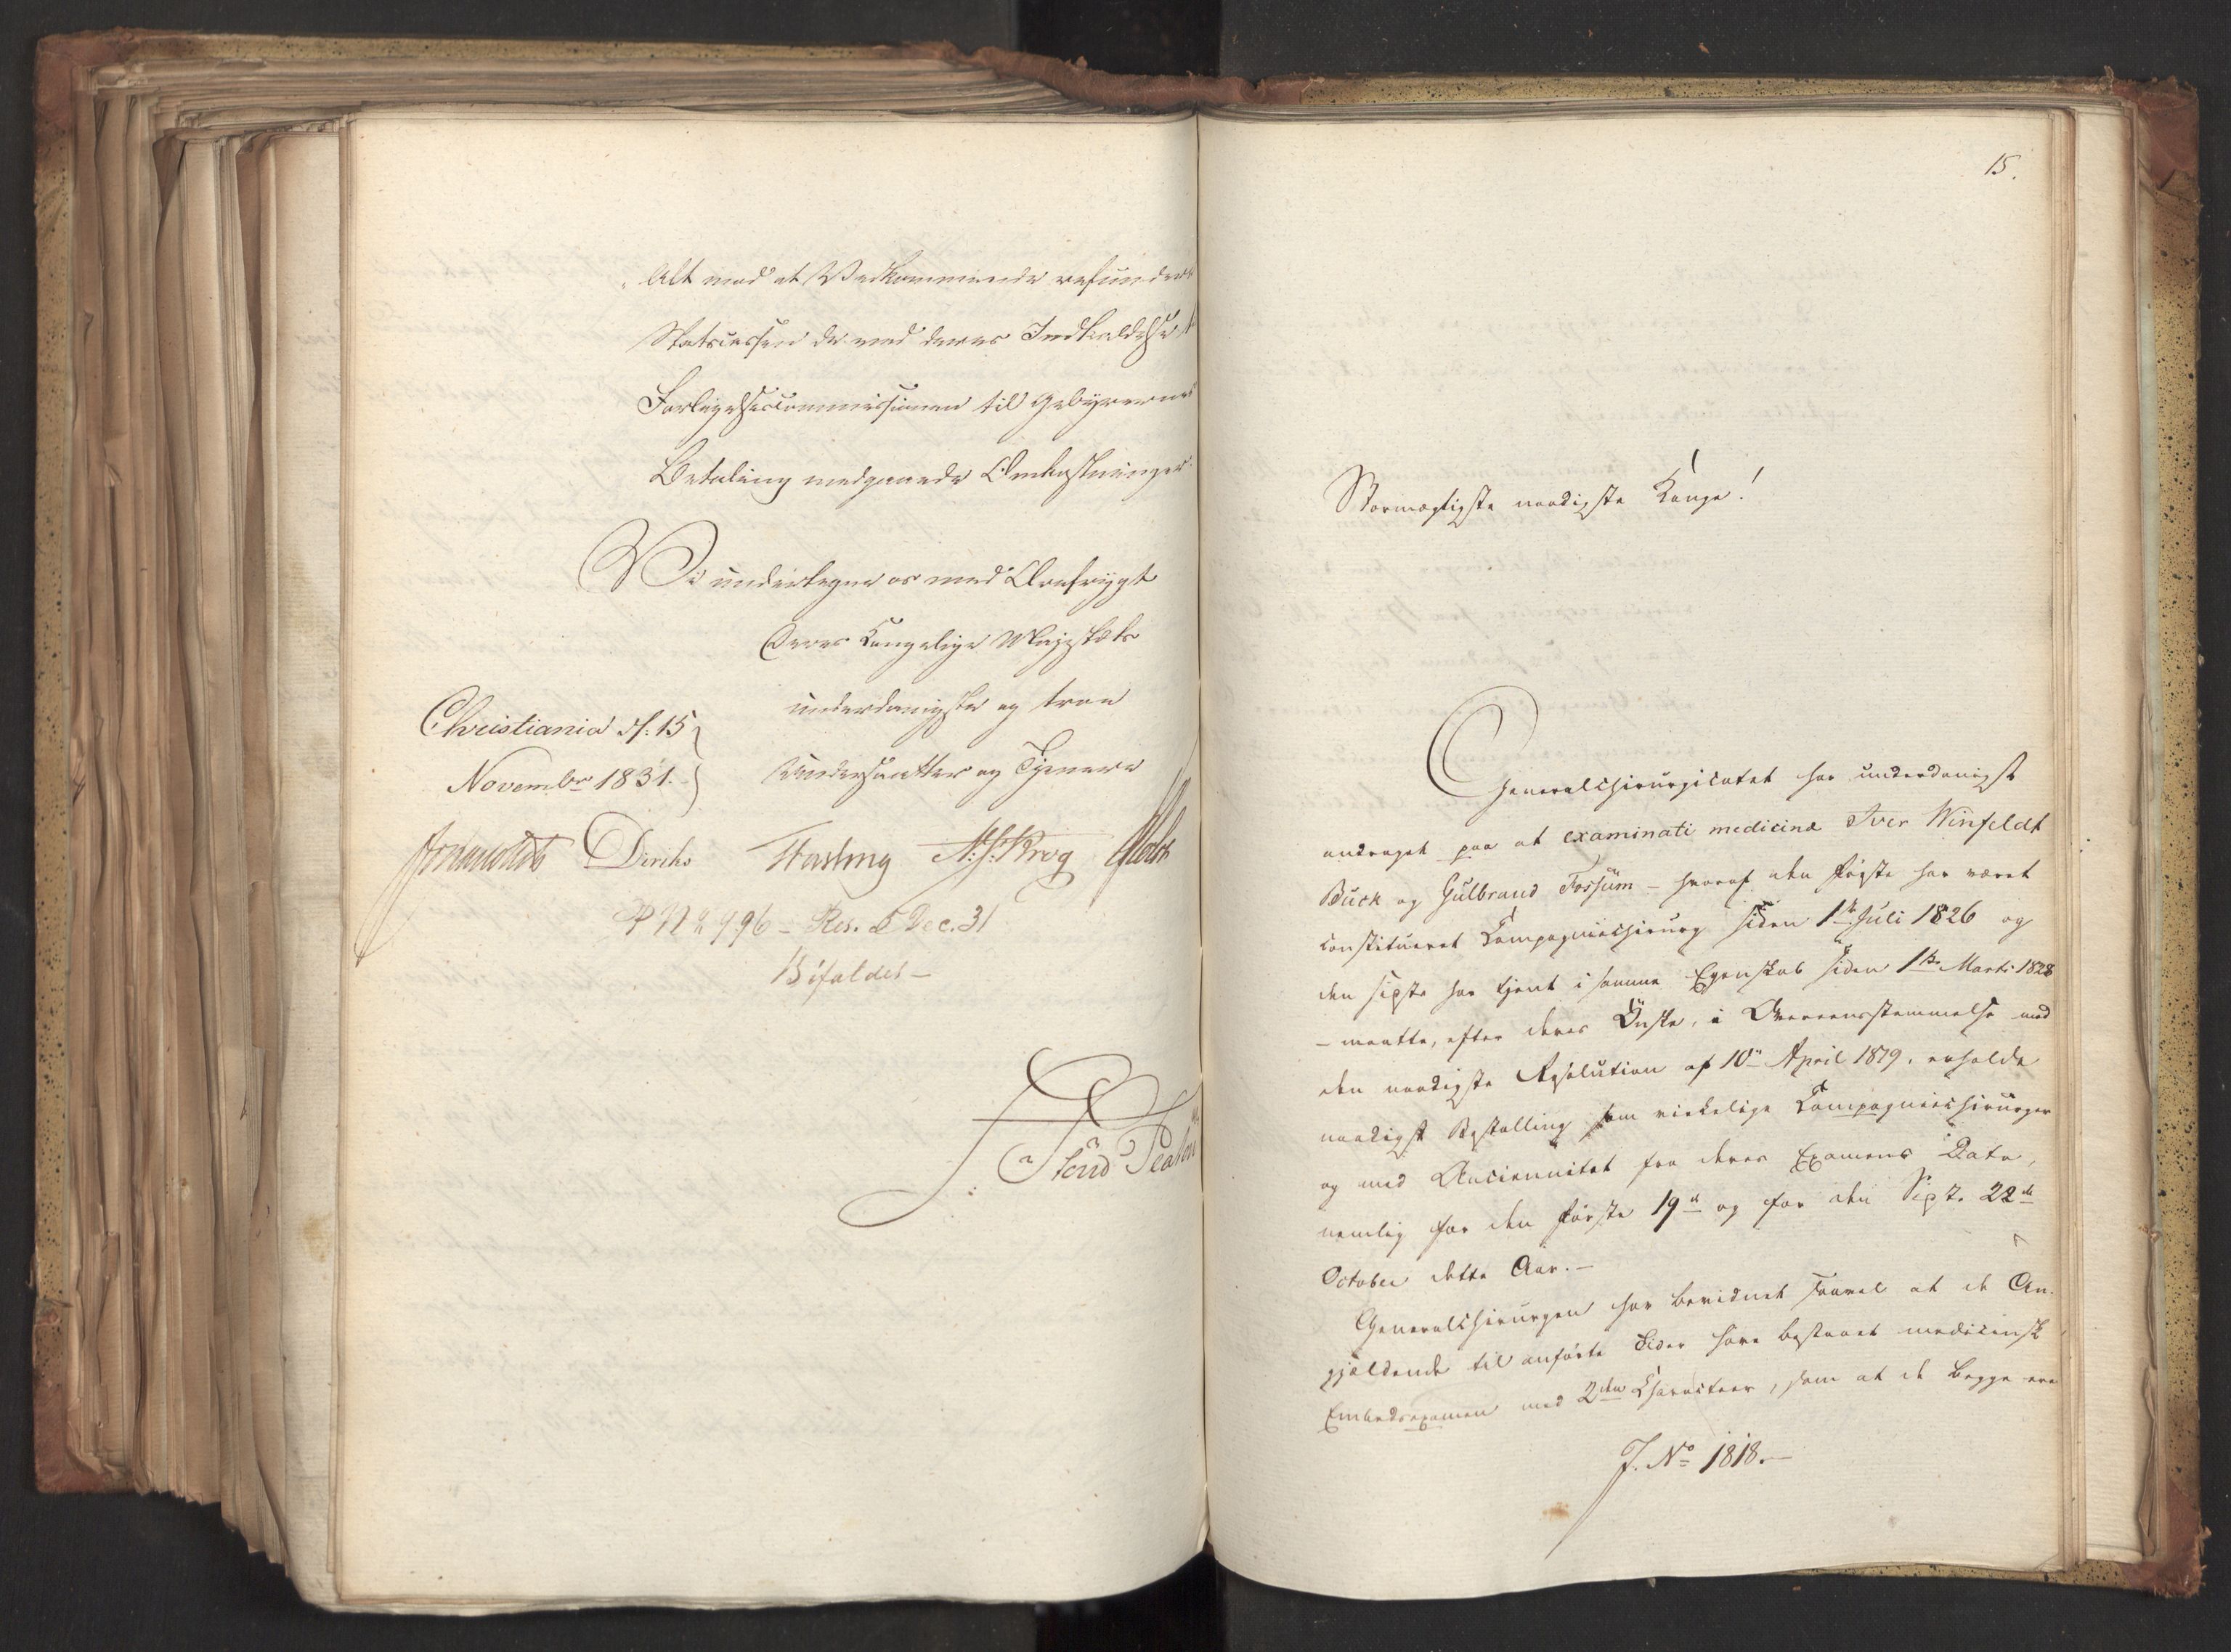 Alt mod at Vedkommende refunderer
Statscassen de med deres Indkaldelse
Forligelsescommissionen til Gebyrernes
Betaling medgaaede Omkostninger.
Vi undertegne os med Ærefrygt
Deres Kongelige Majestæts
underdanigste og troe
Undersaatter og Tjenere
Christiania d: 15
Novembr 1831.
Diriks Fasting N. J. Krog
Res. 5 Dec. 31
Bifaldet -
15.
Stormægtigste naadigste Konge!
Generalchirurgicatet har underdanigst
andraget paa at examinati medicinæ Iver Winfeldt
Buck og Gulbrand Fossum - hvoraf den første har været
constitueret Compagniechirurg siden 1ste Juli 1826 og
den sidste har tjent i samme Egenskab siden 1ste Marts 1828
- maatte, efter deres Ønske, i Overeensstemmelse med
den naadigste Resolution af 10de April 1819, erholde
naadigst Bestalling som virkelige Compagniechirurger
og med Anciennitet fra deres Examens Dato,
nemlig for den første 19de og for den sidste 22de
October dette Aar. -
Generalchirurgen har bevidnet saavel at de An-
gjældende til anførte Tider have bestaaet medicinsk
Embedsexamen med 2den Charakteer, som at de begge ere
J. No 1818. -